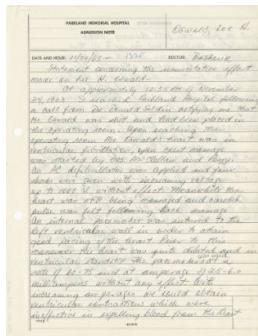 PARKLAND MEMORIAL HOSPITAL
ADMISSION NOTE
Oswald, Lee H.
DATE AND HOUR 11/24/63 - DOCTOR: Bashour
Statement concerning the resuscitative effort
made on Lee H. Oswald
At approximately November
24, 1963 I reached Parkland Hospital following
a call from Dr. notifying me that
Mr Oswald was shot and had been placed in
the operating room. Upon reaching the
operating room Mr Oswald's heart was in
ventricular fibrillation, open chest massage
was started by Drs McClelland and Perry.
A defibrillator was applied and
shocks were given with increasing voltage
up to without effect. Meanwhile the
heart was still being massaged and carotid
pulse was felt following each massage
An internal pacemaker was sutured to the
left ventricular wall in order to attain
good pacing of the heart. Prior to this
maneuver the heart was quite dilated and in
ventricular standstill. The pacemaker at a
rate of and at amperage of
milliamperes without any effect. With
increasing amperages we could obtain
ventricular contractions which were
ineffective in expelling blood from the heart